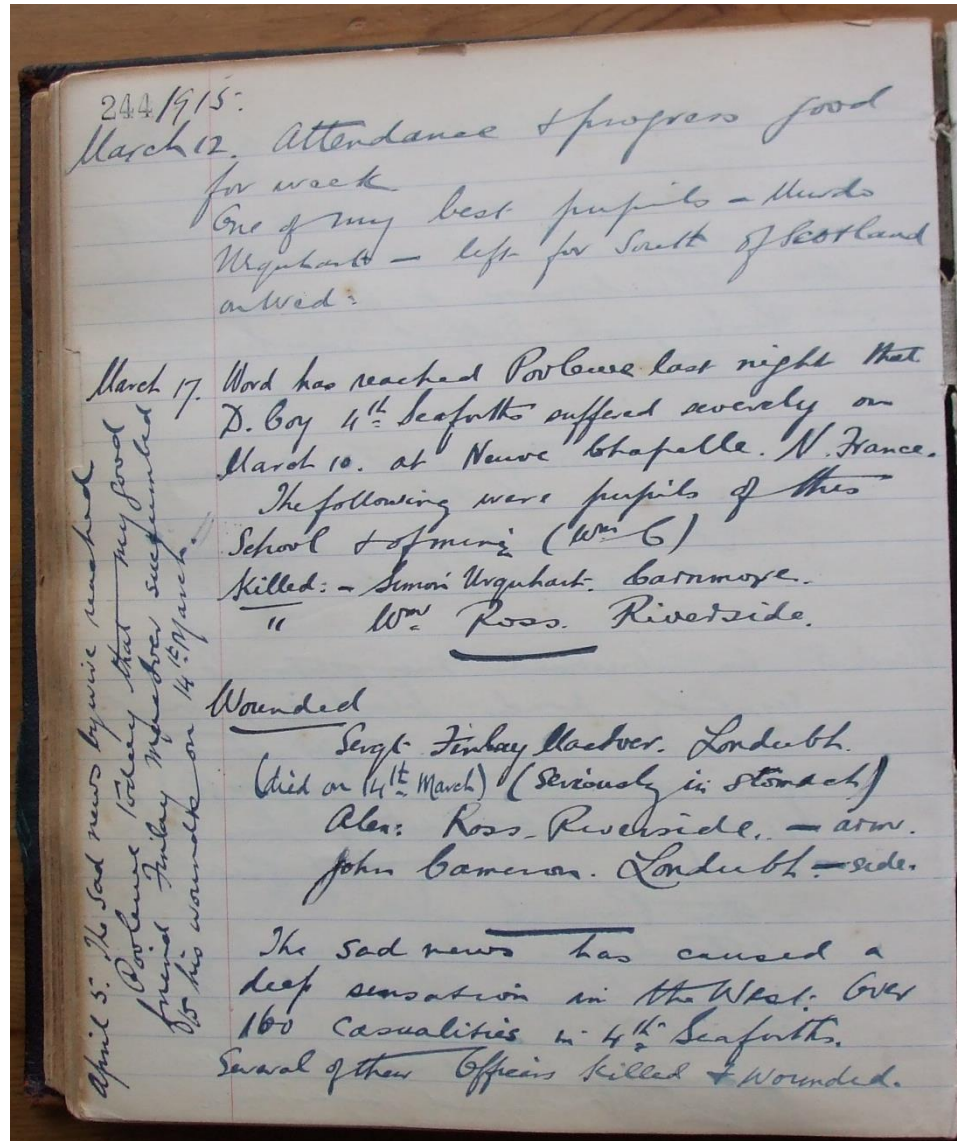 244 1915.
March 12. Attendance & progress good
for week
One of my best pupils - Murdo
Urquhart - left for South of Scotland
on Wed:
March 17. Word has reached Poolewe last night that
D. Coy 4th Seaforths suffered severely on
March 10. at Neuve Chapelle. N. France.
The following were pupils of this
School & of mine (Wm G)
Killed: - Simon Urquhart. Carnmore.
" Wm Ross. Riverside.
Wounded
Sergt Finlay MacIver. Londubh.
(died on 14th March) (Seriously in stomach)
Alex: Ross - Riverside. - arm.
John Cameron. Londubh. - side.
The sad news has caused a
deep sensation in the West. Over
160 casualities in 4th Seaforths.
Several of their Officers killed & wounded.
April 5. The sad news by wire reached
Poolewe today that my good
friend Finlay McIver succumbed
to his wounds on 14th March.